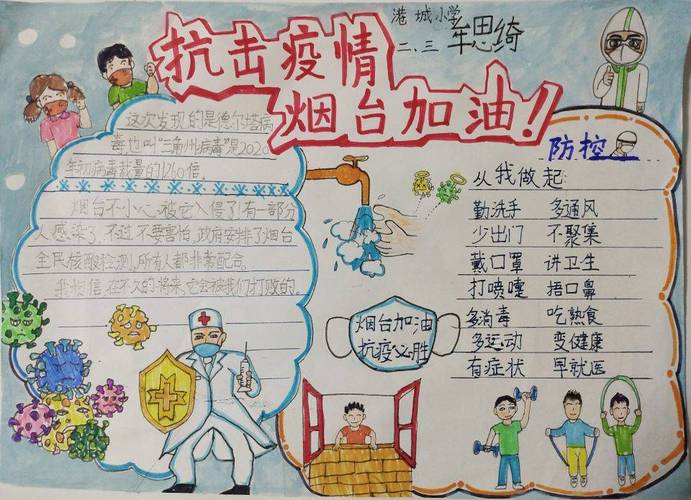 港城小学
二、三 车思绮
抗击疫情
烟台加油!!
这次发现的是德尔塔病
毒也叫"三角州病毒"是2020
年初病毒载量的1260倍。
烟台不小心被它入侵了!有一部分
人感染了,不过不要害怕,政府安排了烟台
全民核酸检测,所有人都非常配合。
我相信,在不久的将来,它会被我们打败的。
防控
从我做起:
勤洗手 多通风
少出门 不聚集
戴口罩 讲卫生
打喷嚏 捂口鼻
多消毒 吃熟食
多运动 变健康
有症状 早就医
烟台加油
抗疫必胜